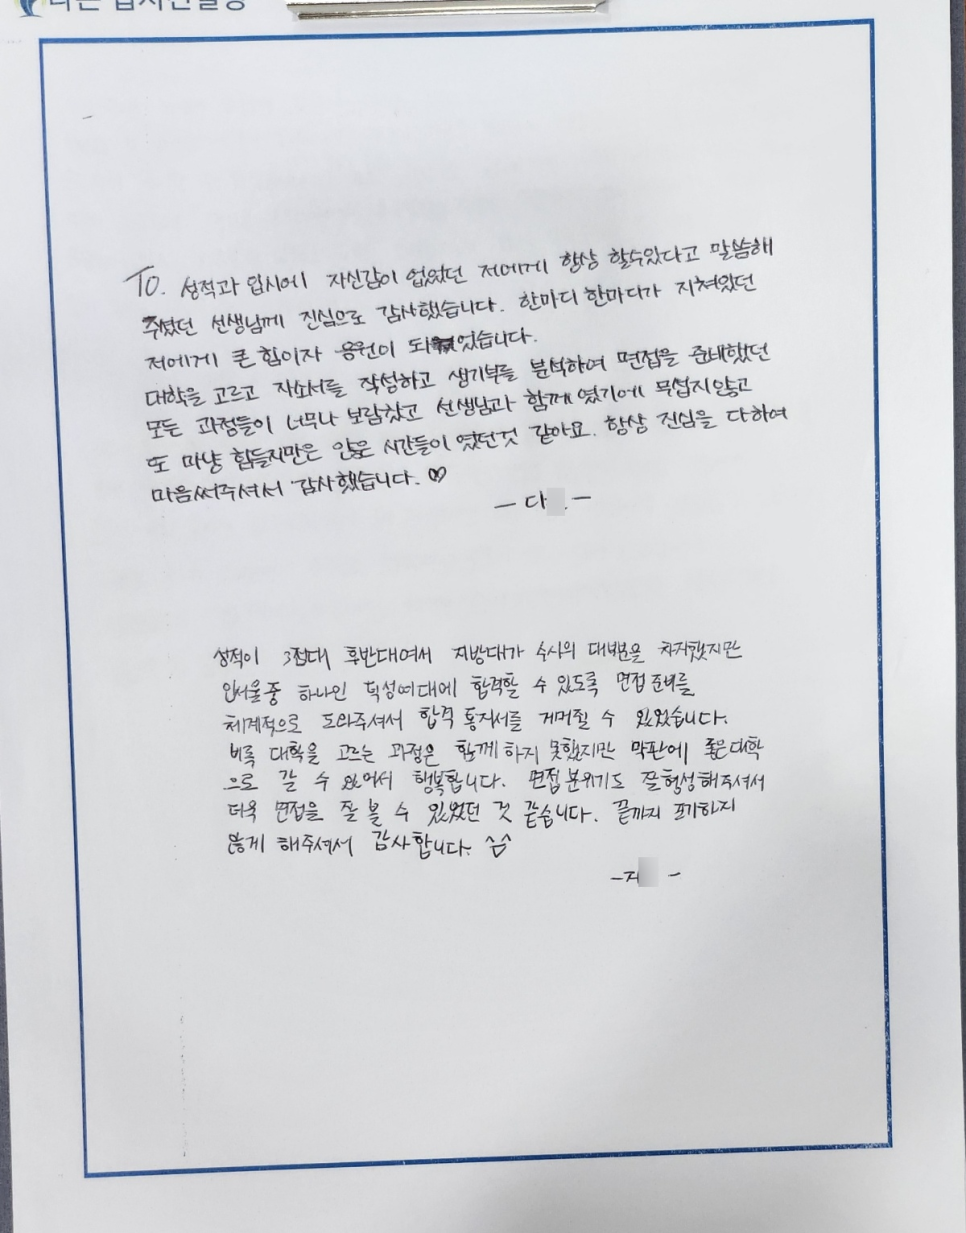 TO. 성적과 입시에 자신감이 없었던 저에게 항상 할수있다고 말씀해
주셨던 선생님께 진심으로 감사했습니다. 한마디 한마디가 지쳐있던
저에게 큰 힘이자 응원이 되었습니다.
대학을 고르고 자소서를 작성하고 생기부를 분석하여 면접을 준비했던
모든 과정들이 너무나 보람찼고 선생님과 함께 였기에 무섭지않고
또 마냥 힘들지만은 않은 시간들이 였던것 같아요. 항상 진심을 다하여
마음써주셔서 감사했습니다. ♡
- 다 -
성적이 3점대 후반대여서 지방대가 수시의 대부분을 차지했지만
인서울중 하나인 덕성여대에 합격할 수 있도록 면접준비를
체계적으로 도와주셔서 합격 통지서를 거머쥘 수 있었습니다.
비록 대학을 고르는 과정은 함께하지 못했지만 막판에 좋은대학
으로 갈 수 있어서 행복합니다. 면접분위기도 잘형성해주셔서
더욱 면접을 잘 볼 수 있었던 것 같습니다. 끝까지 포기하지
않게 해주셔서 감사합니다. ^^
- 지 -